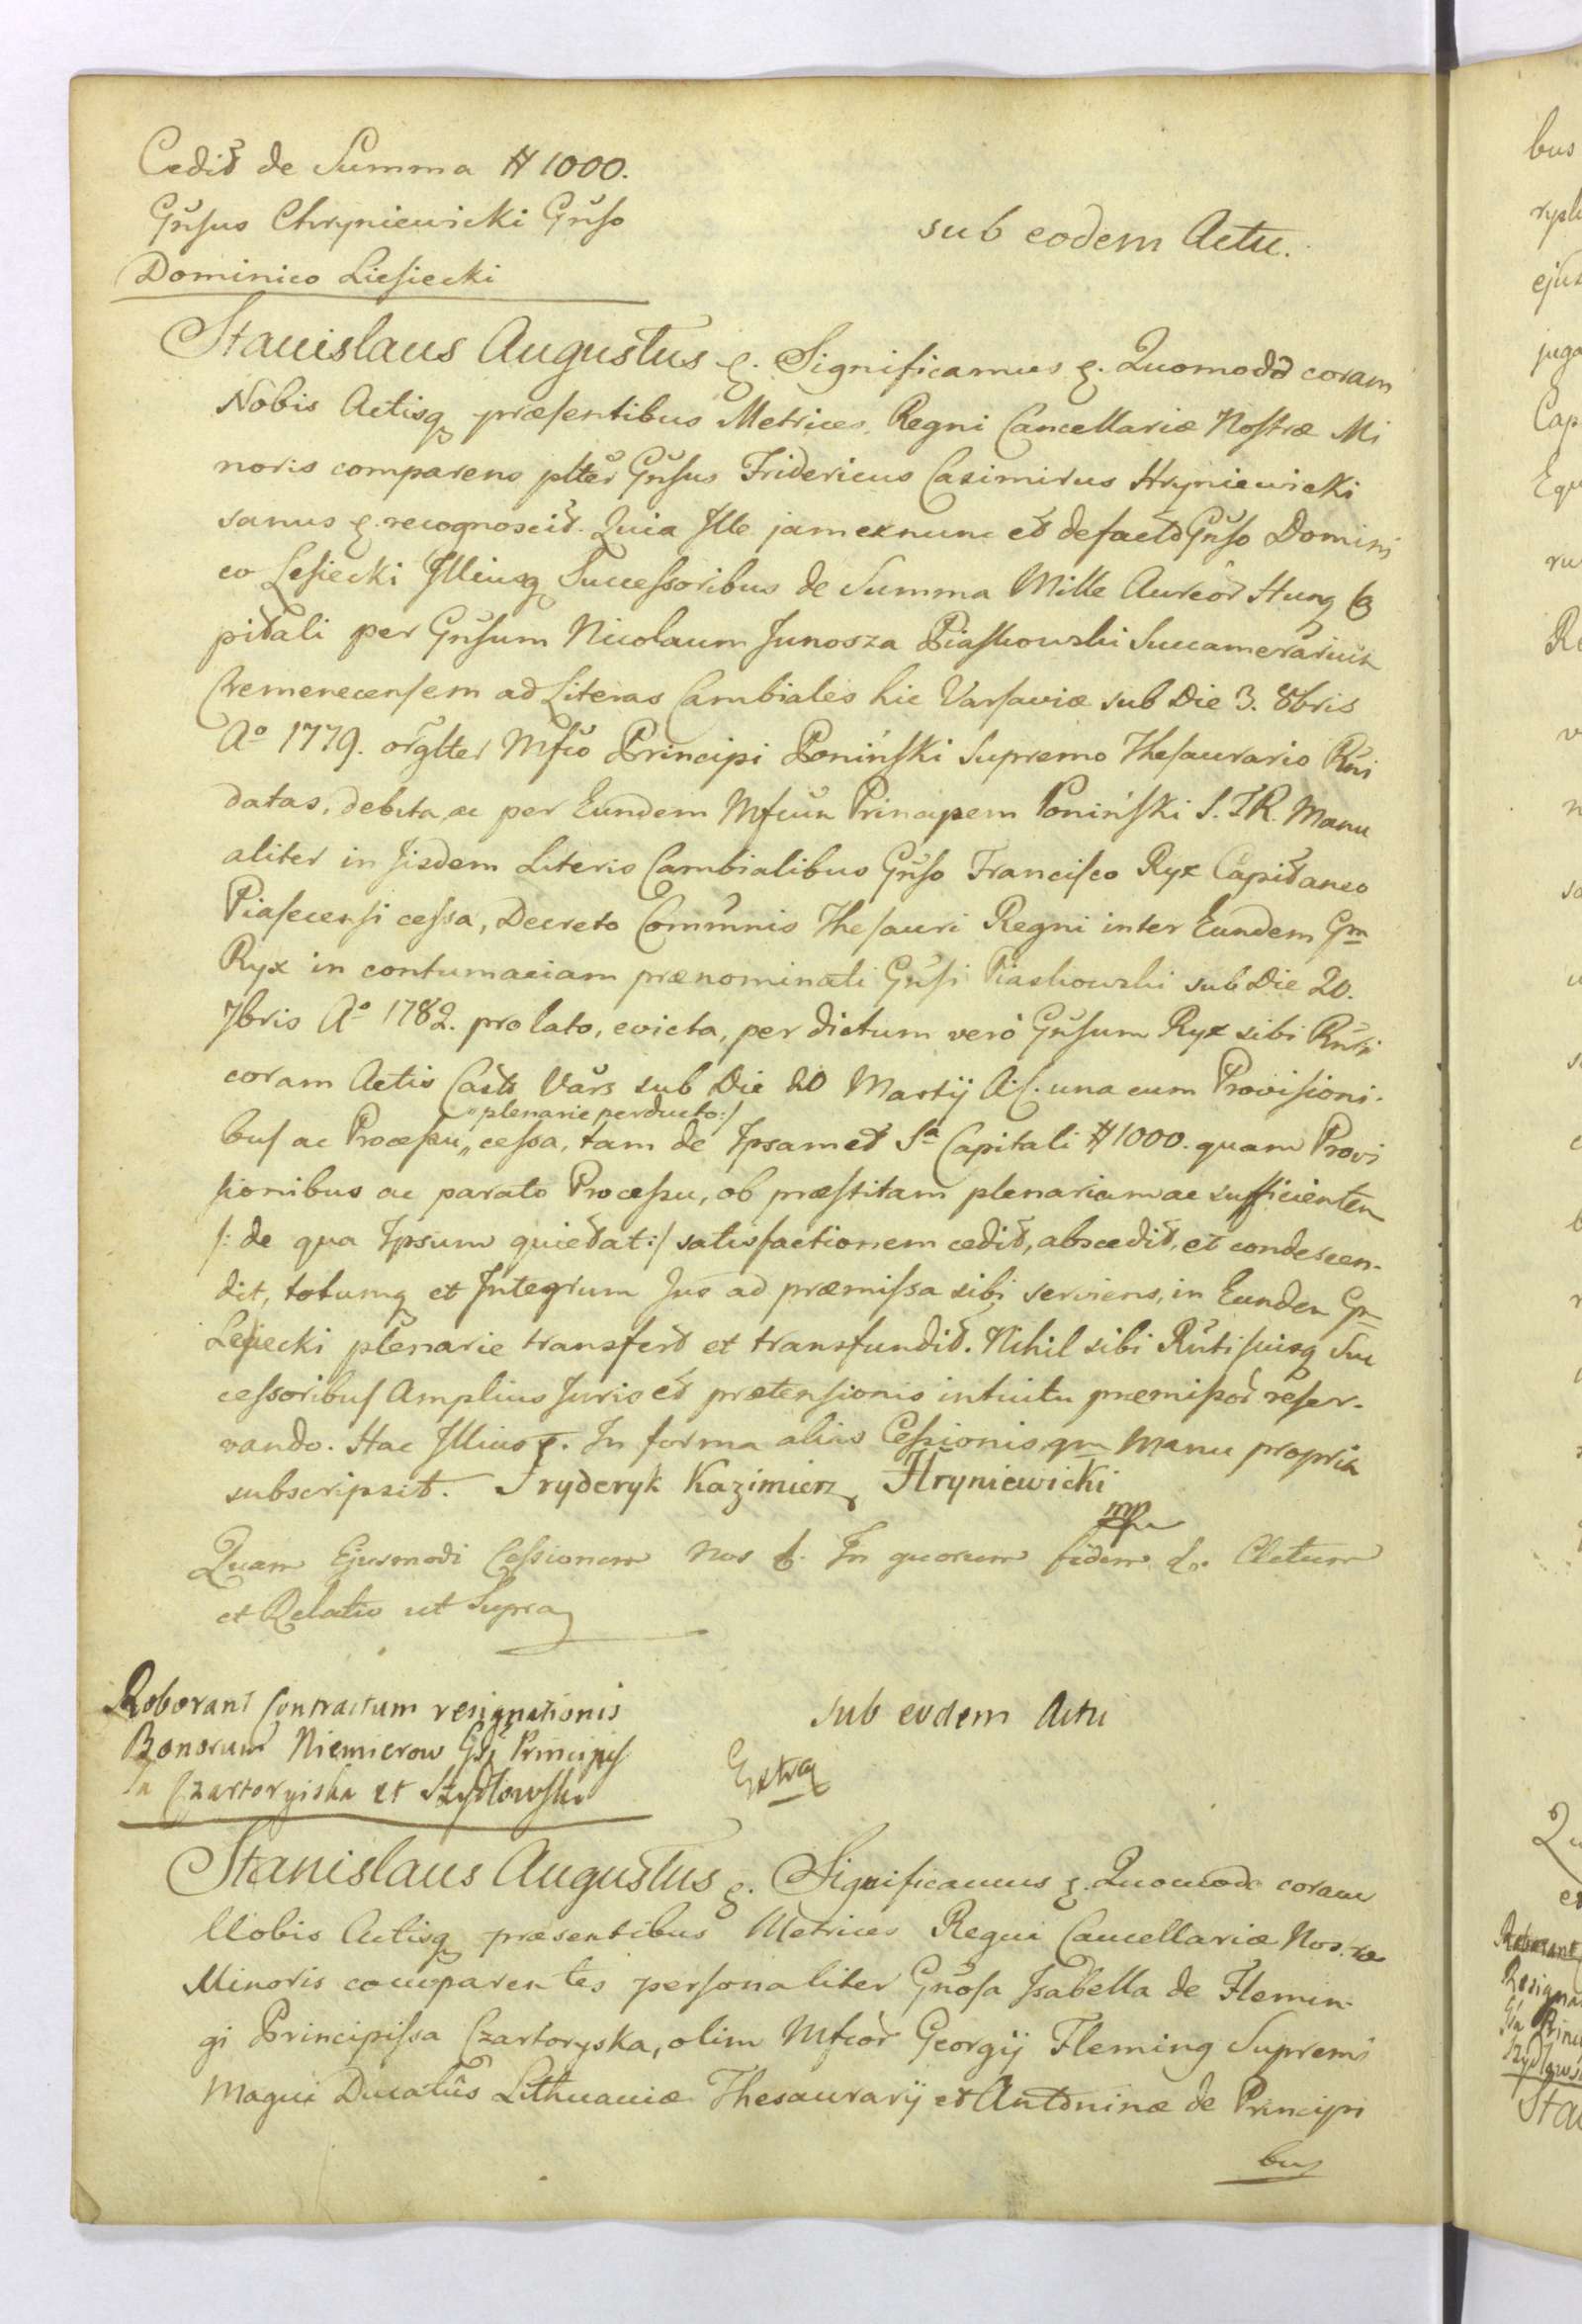 Cedit de Summa # 1000.
Gnsus Chryniewicki Gnso
Dominico Liesiecki
sub eodem Actu.
Stanislaus Augustus &. Significamus &. Quomodo coram
Nobis Actisq præsentibus Metrices Regni Cancellariæ Nostræ Mi
noris comparens plter Gnsus Fridericus Casimirus Hryniewicki
sanus &. recognoscit. Quia Ille jam exnunc et defacto Gnso Domini
co Lesiecki Illiusq Successoribus de Summa Mille Aureor Hung Ca
pitali per Gnsum Nicolaum Junosza Piaskowski Succamerarium
Cremenecensem ad Literas Cambiales hic Varsaviæ sub Die 3. 8bris
Aº 1779. orglter Mfco Principi Poniński Supremo Thesaurario Rni
datas, debita, ac per Eundem Mfcum Principem Poniński S. T. R. Manu
aliter in iisdem Literis Cambialibus Gnso Francisco Ryx Capitaneo
Piasecensi cessa, Decreto Commnis Thesauri Regni inter Eundem Gm
Ryx in contumaciam prænominati Gnsi Piaskowski sub Die 20.
7bris Aº 1782. prolato, evicta, per dictum verò Gnsum Ryx sibi Rnti
coram Actis Casts Vars sub Die 20 Martij A. C. una cum Provisioni-
bus ac Processu „plenarie perducto:/ cessa, tam de Ipsamet Sa Capitali # 1000. quam Provi
sionibus ac parato Processu, ob præstitam plenariam ac sufficientem
/: de qua Ipsum quietat:/ satisfactionem cedit, abscedit, et condescen-
dit, totumq et Integrum Jus ad præmissa sibi serviens, in Eundem Gm
Lesiecki plenarie transfert et transfundit. Nihil sibi Rnti suisq Suc
cessoribus Amplius Juris et prætensionis intuitu præmissor reser-
vando. Hac Illius &. In forma alias Cessionis, qm Manu propria
subscripsit. Fryderyk Kazimierz Hryniewicki
mp
Quam Ejusmodi Cessionem Nos &. In quorum fidem &. Actum
et Relatio ut Supra
Roborant Contractum resignationis
Bonorum Niemierow Gsj Principis
sa Czartoryiska et Szydłowski
sub eodem Actu
Extra
Stanislaus Augustus &. Significamus &. Quomodo coram
Nobis Actisq præsentibus Metrices Regni Cancellariæ Nostræ
Minoris comparentes personaliter Gnosa Isabella de Flemin-
gi Principissa Czartoryska, olim Mfcor Georgij Fleming Supremi
Magni Ducatûs Lithuaniæ Thesaurarij et Antoninæ de Principi
bus